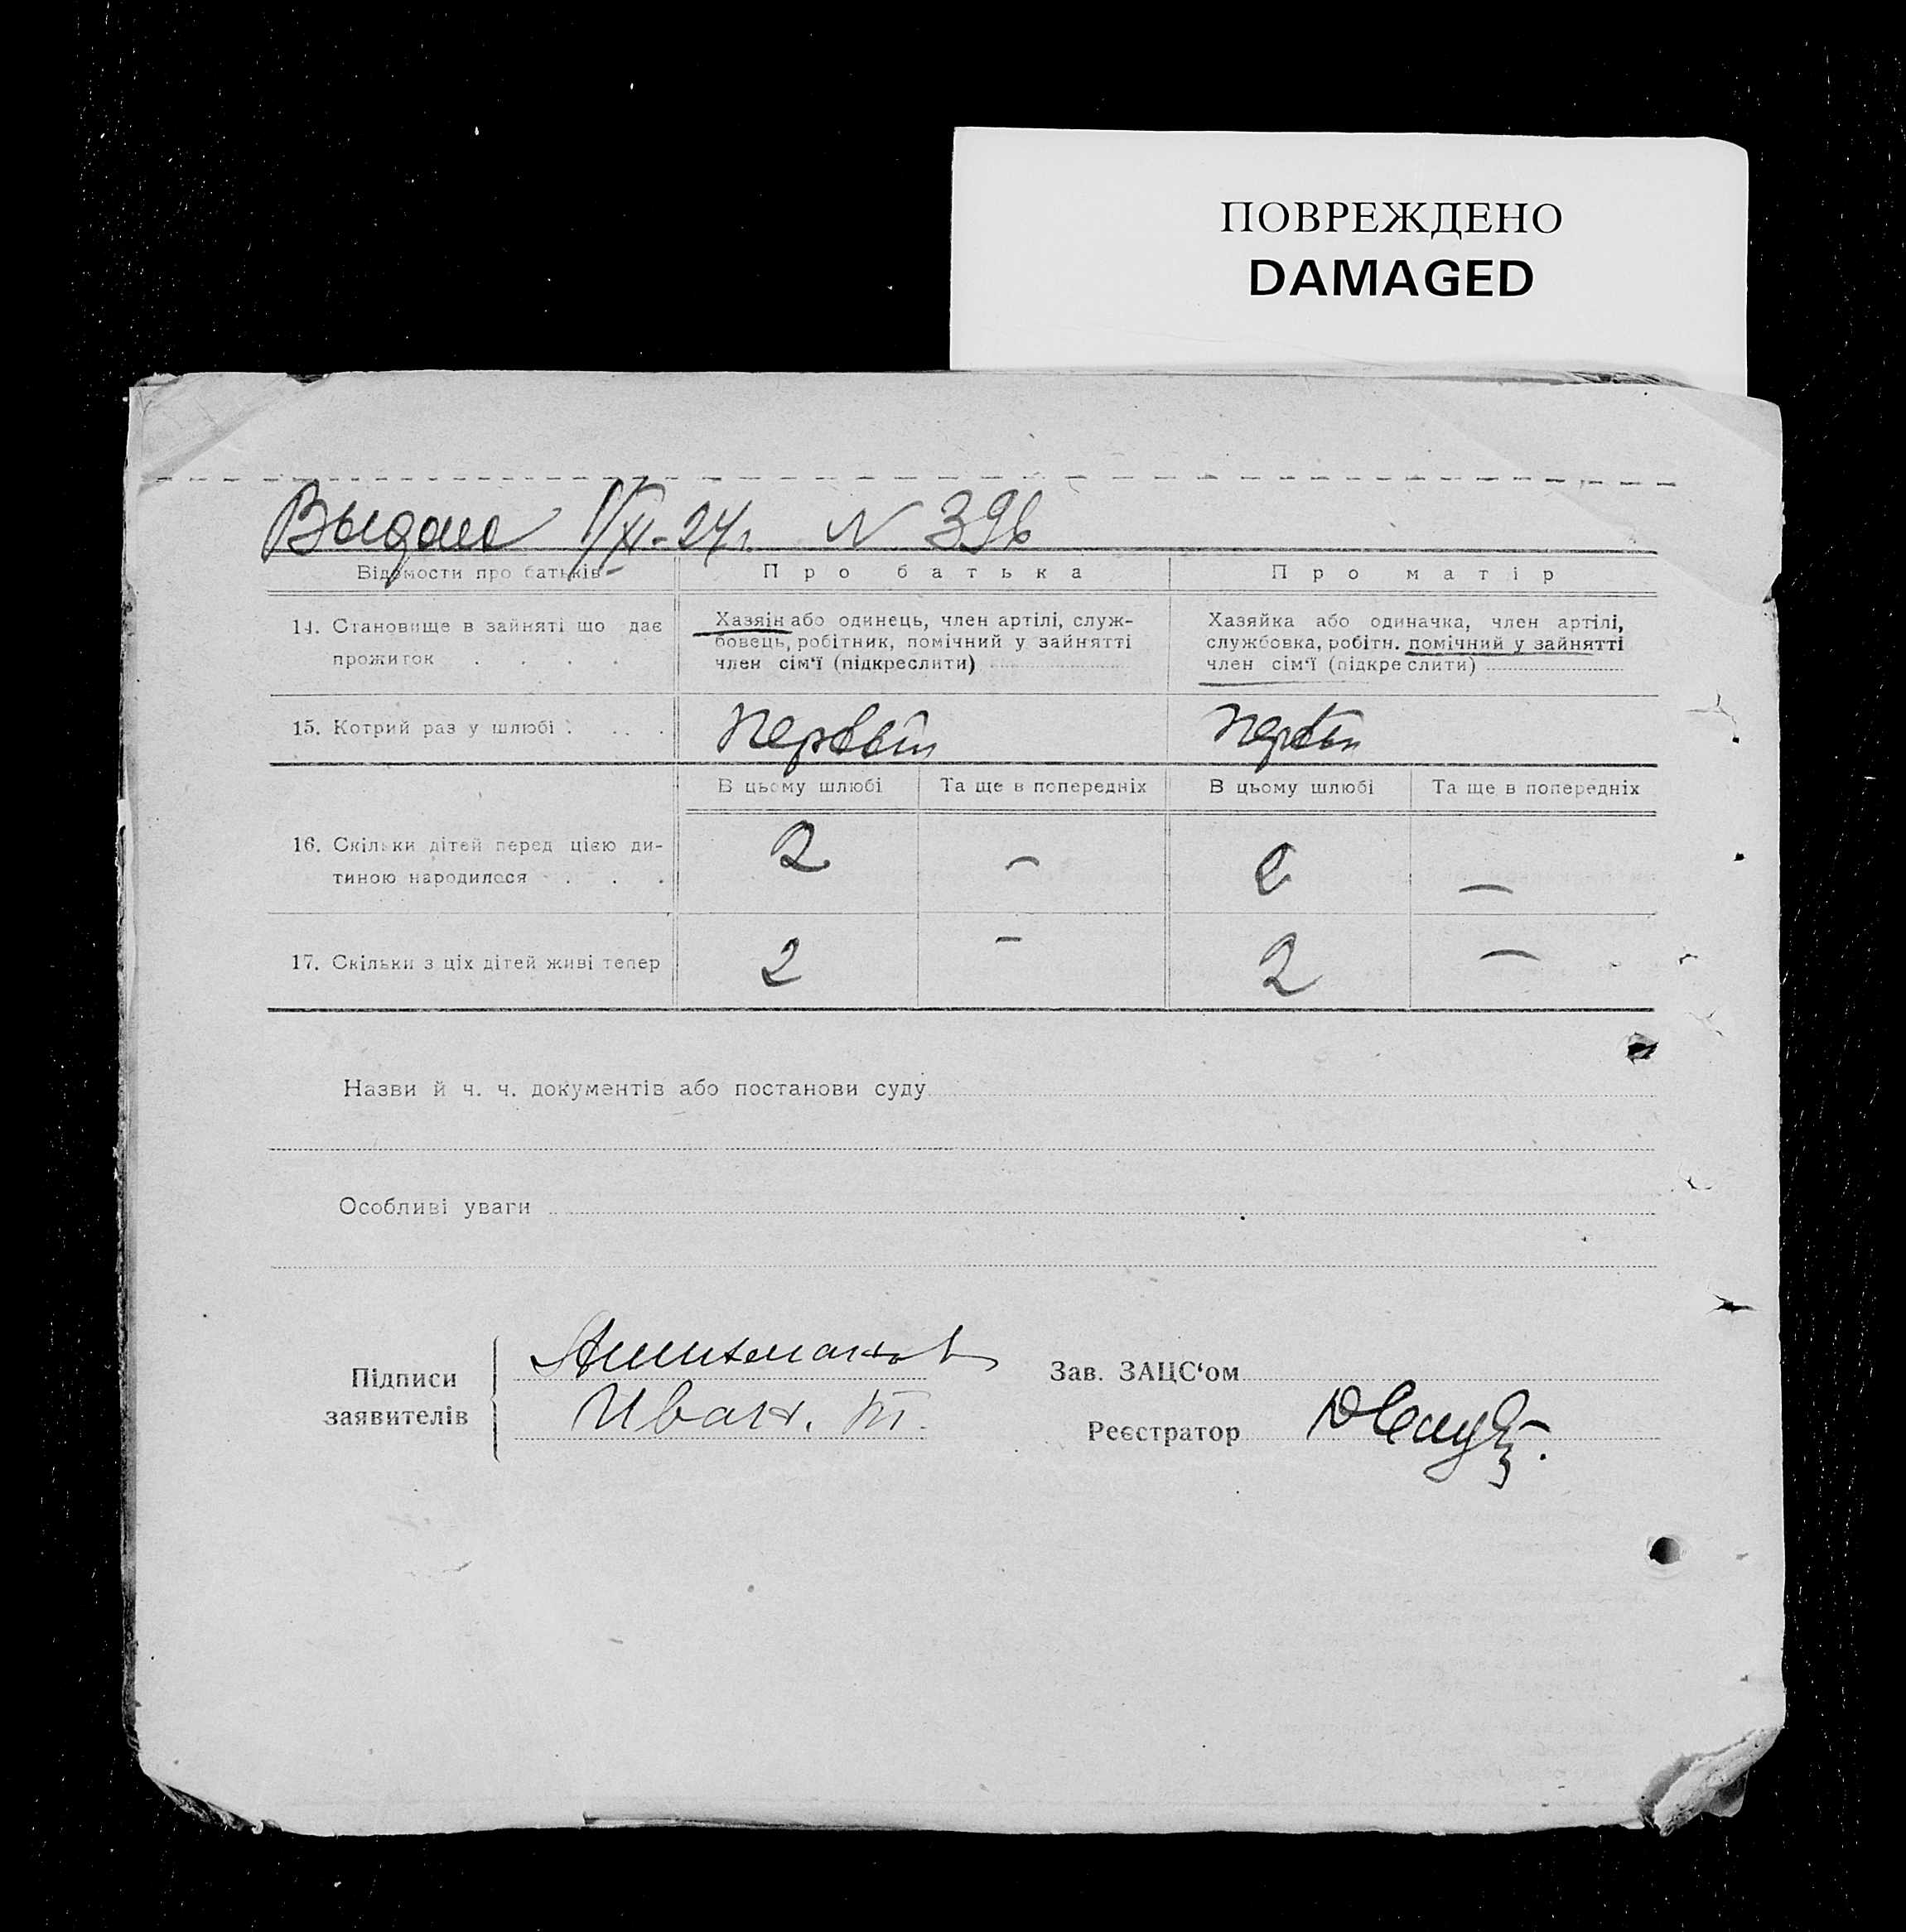 ПОВРЕЖДЕНО
DAMAGED
Выдано 1/XI-24г. N 396
Відомости про батьків
Про батька
Про матір
14. Становище в зайняті що дає
прожиток . . . .
Хазяїн або одинець, член артілі, служ-
бовець, робітник, помічний у зайнятті
член сім'ї (підкреслити)
Хазяйка або одиначка, член артілі,
службовка, робітн. помічний у зайнятті
член сім'ї (підкреслити)
15. Котрий раз у шлюбі . . . .
Первый
Первый
В цьому шлюбі
Та ще в попередніх
В цьому шлюбі
Та ще в попередніх
16. Скільки дітей перед цією ди-
тиною народилося . . .
2
—
2
—
17. Скільки з ціх дітей живі тепер
2
—
2
—
Назви й ч. ч. документів або постанови суду
Особливі уваги
Підписи
заявителів
Иван.
Зав. ЗАЦС‘ом
Реєстратор